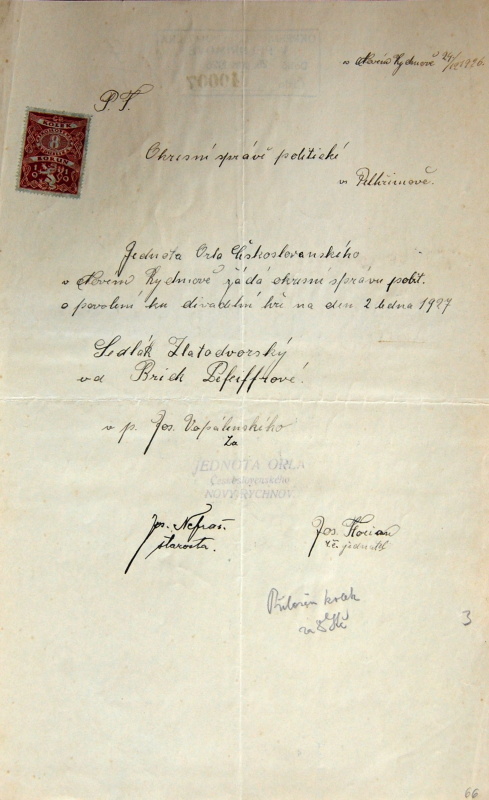 v Novém Rychnově 29/XII 1926.
P. T.
8
KOLEK
KORUN
Okresní správě politické
v Pelhřimově.
Jednota Orla Československého
v Novém Rychnově žádá okresní správu polit.
o povolení ku divadelní hře na den 2 ledna 1927
Sedlák Zlatodvorský
od Brich Pfeiffrové.
v p. Jos. Vopálenského
Za
JEDNOTA ORLA
Československého
NOVÝ RYCHNOV.
Jos. Nefrař
starosta.
Jos. Florian
t.č. jednatel
Přiložen kolek
za 8 Kč
3
66